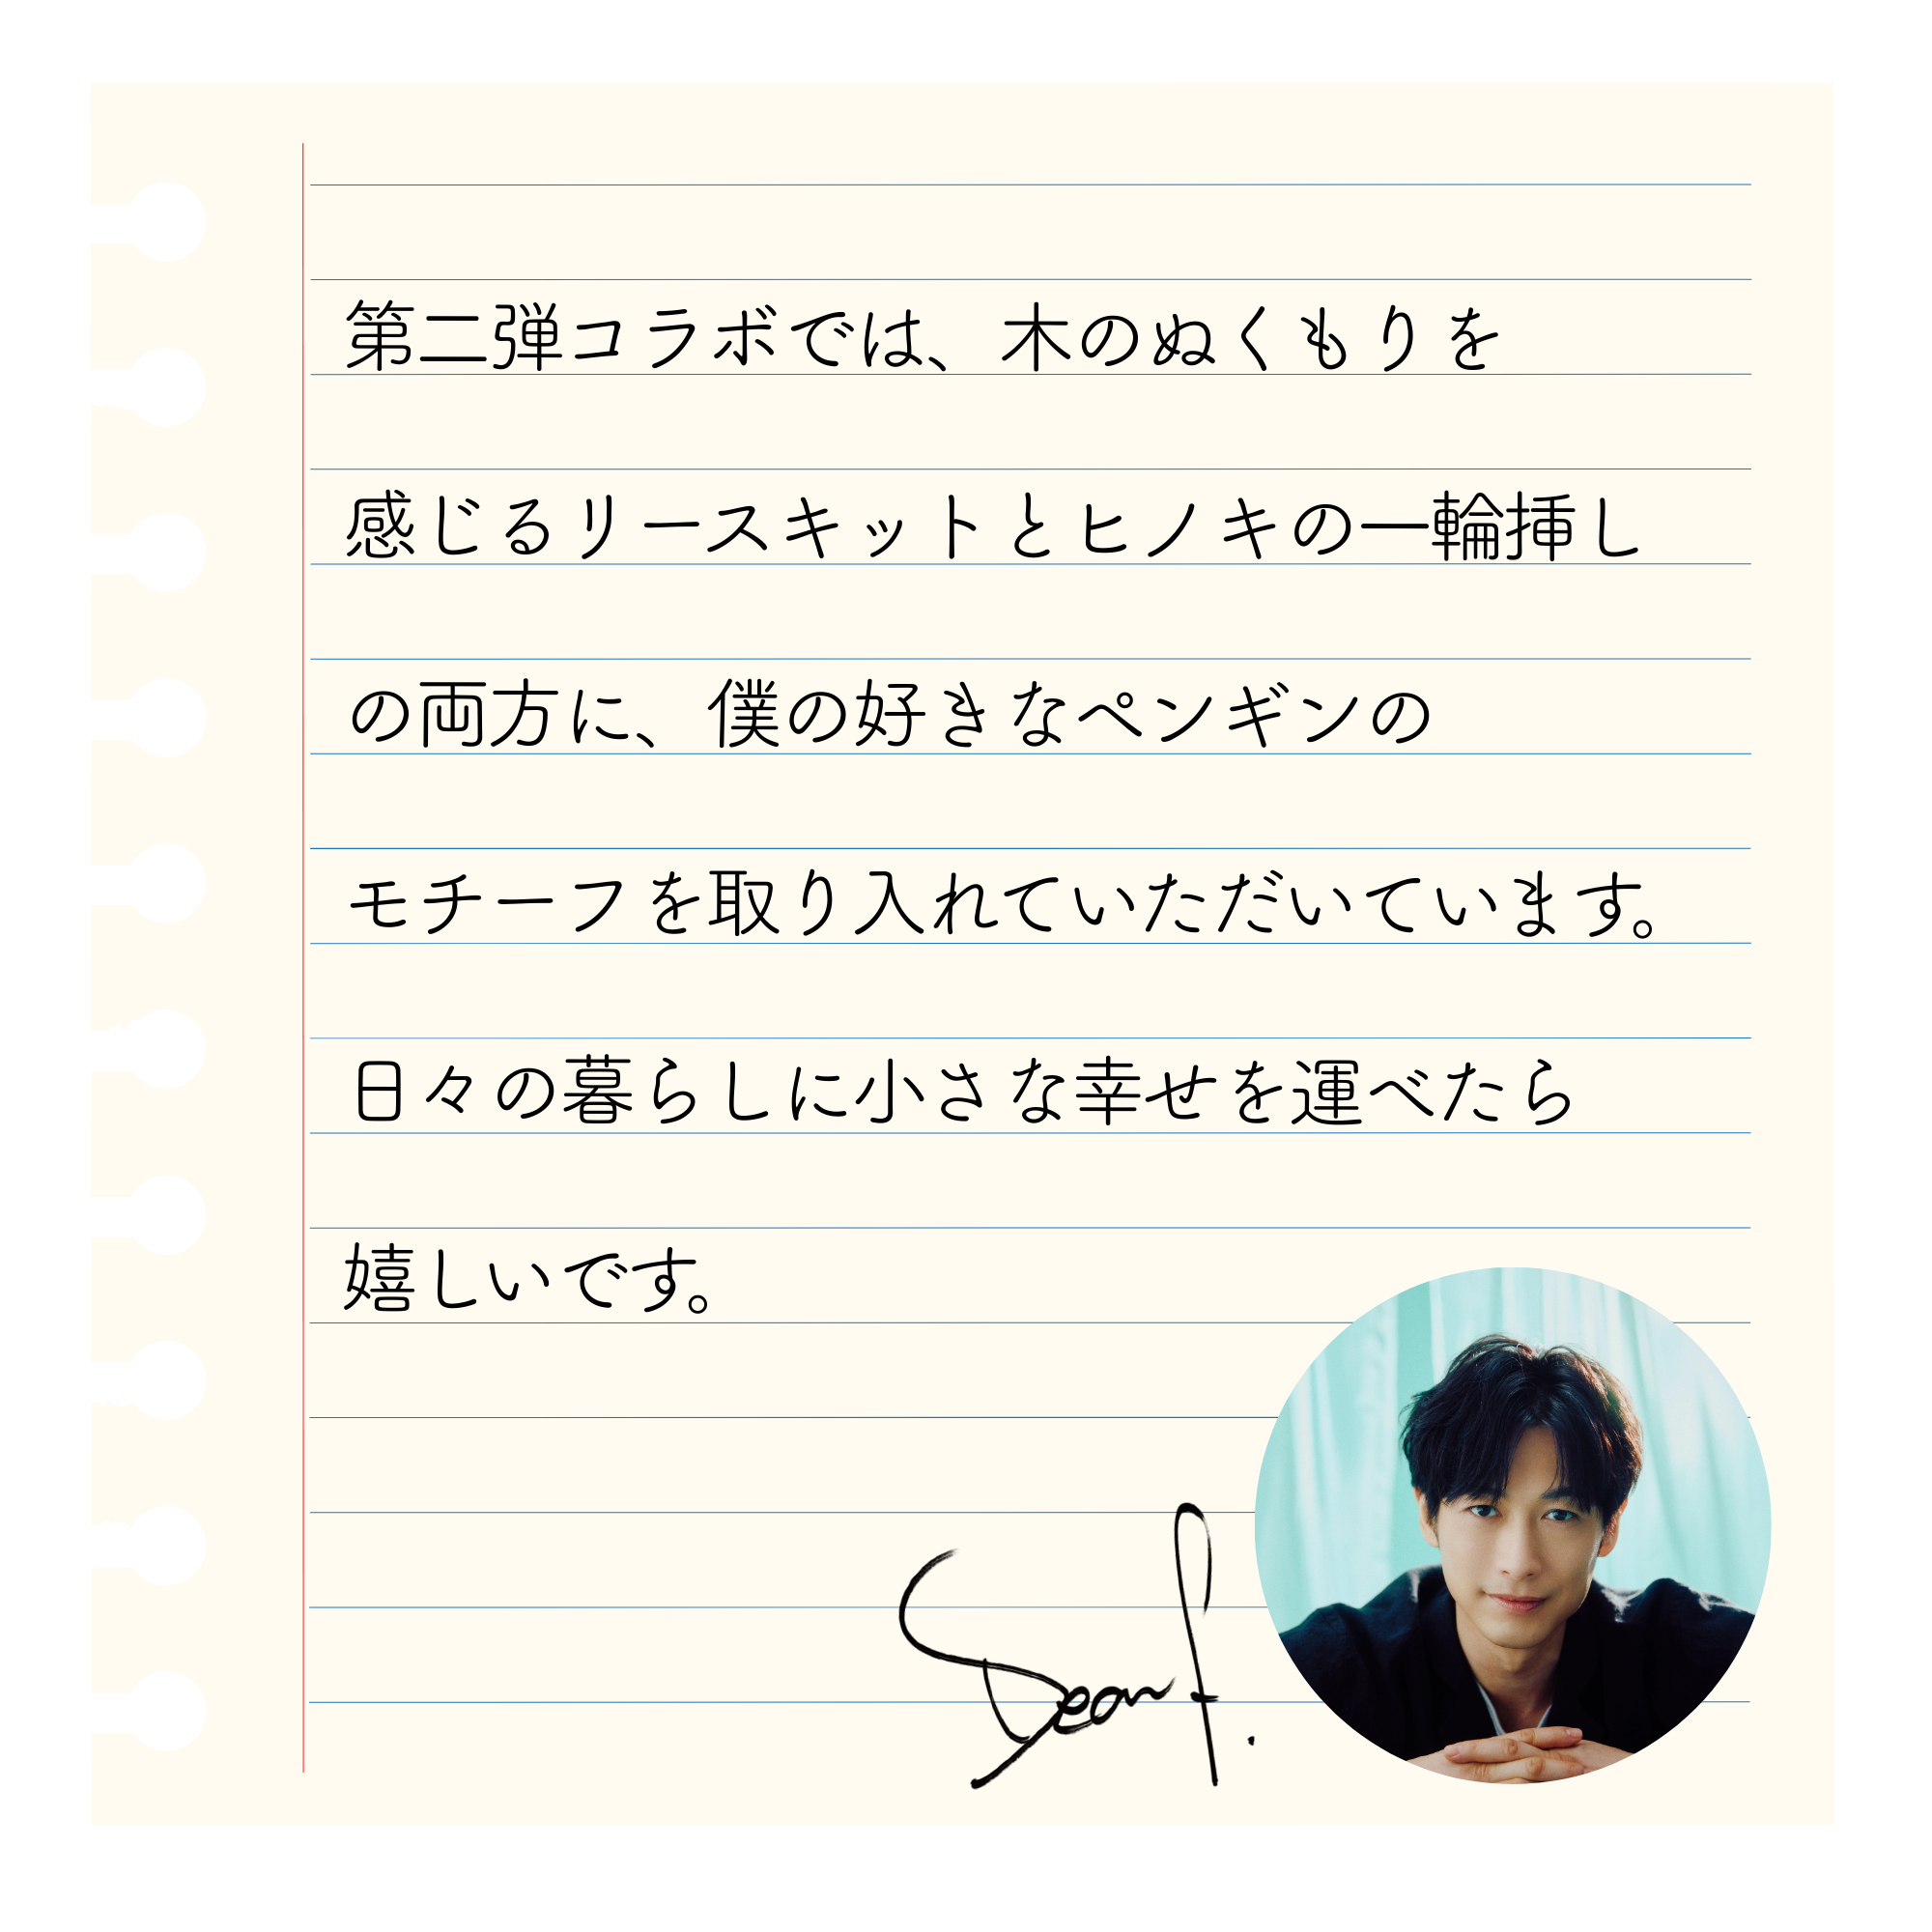 第二弾コラボでは、木のぬくもりを
感じるリースキットとヒノキの一輪挿し
の両方に、僕の好きなペンギンの
モチーフを取り入れていただいています。
日々の暮らしに小さな幸せを運べたら
嬉しいです。
Dean f.